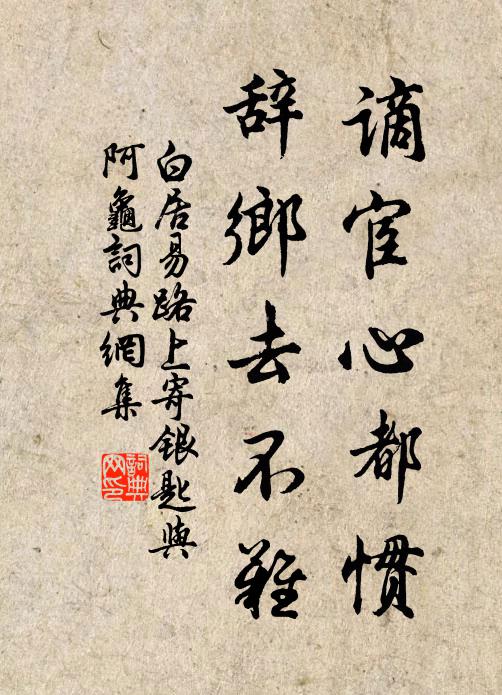 谪宦心都惯
辞鄉去不難
白居易路上寄银匙與
阿龜詞典網集
詞典
网印